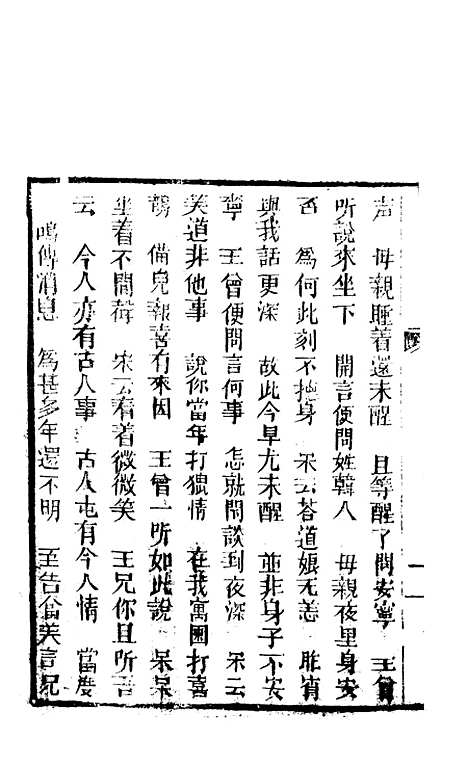 声 母親睡着還未醒 且等醒了問安寧 王曾
听說來坐下 開言便問姓韓人 母親夜里身安
否 爲何此刻不抬身 宋云荅道娘无恙 昨宵
與我話更深 故此今早尤未醒 並非身子不安
寧 王曾便問言何事 怎就閒談到夜深 宋云
笑道非他事 說你當年打猥情 在我寓園打喜
鵲 備皃報喜有來因 王曾一所如此說 呆呆
坐着不開聲 宋云看着微微笑 王兄你且听吾
云 今人亦有古人事 古人屯有今人情 當慶
鳴傳消息 爲甚多年還不明 至告翁美言兄